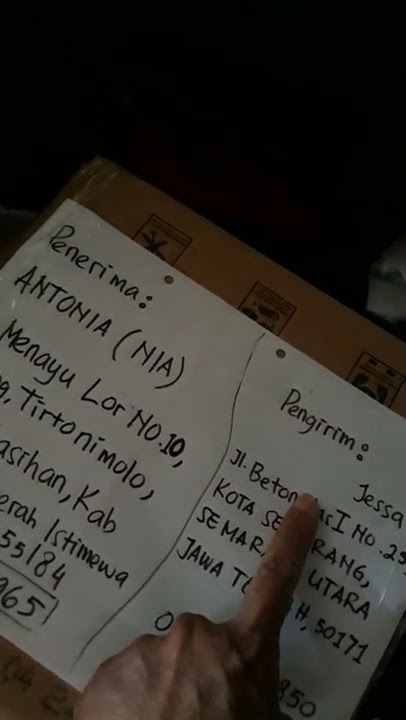 Penerima:
ANTONIA (NIA)
Menayu Lor No.10,
Tirtonimolo,
asihan, Kab
erah Istimewa
55184
965
Pengirim:
Jessa
Jl. Beton I No.25
KOTA SE RANG,
SEMAR UTARA
JAWA T H, 50171
0
850